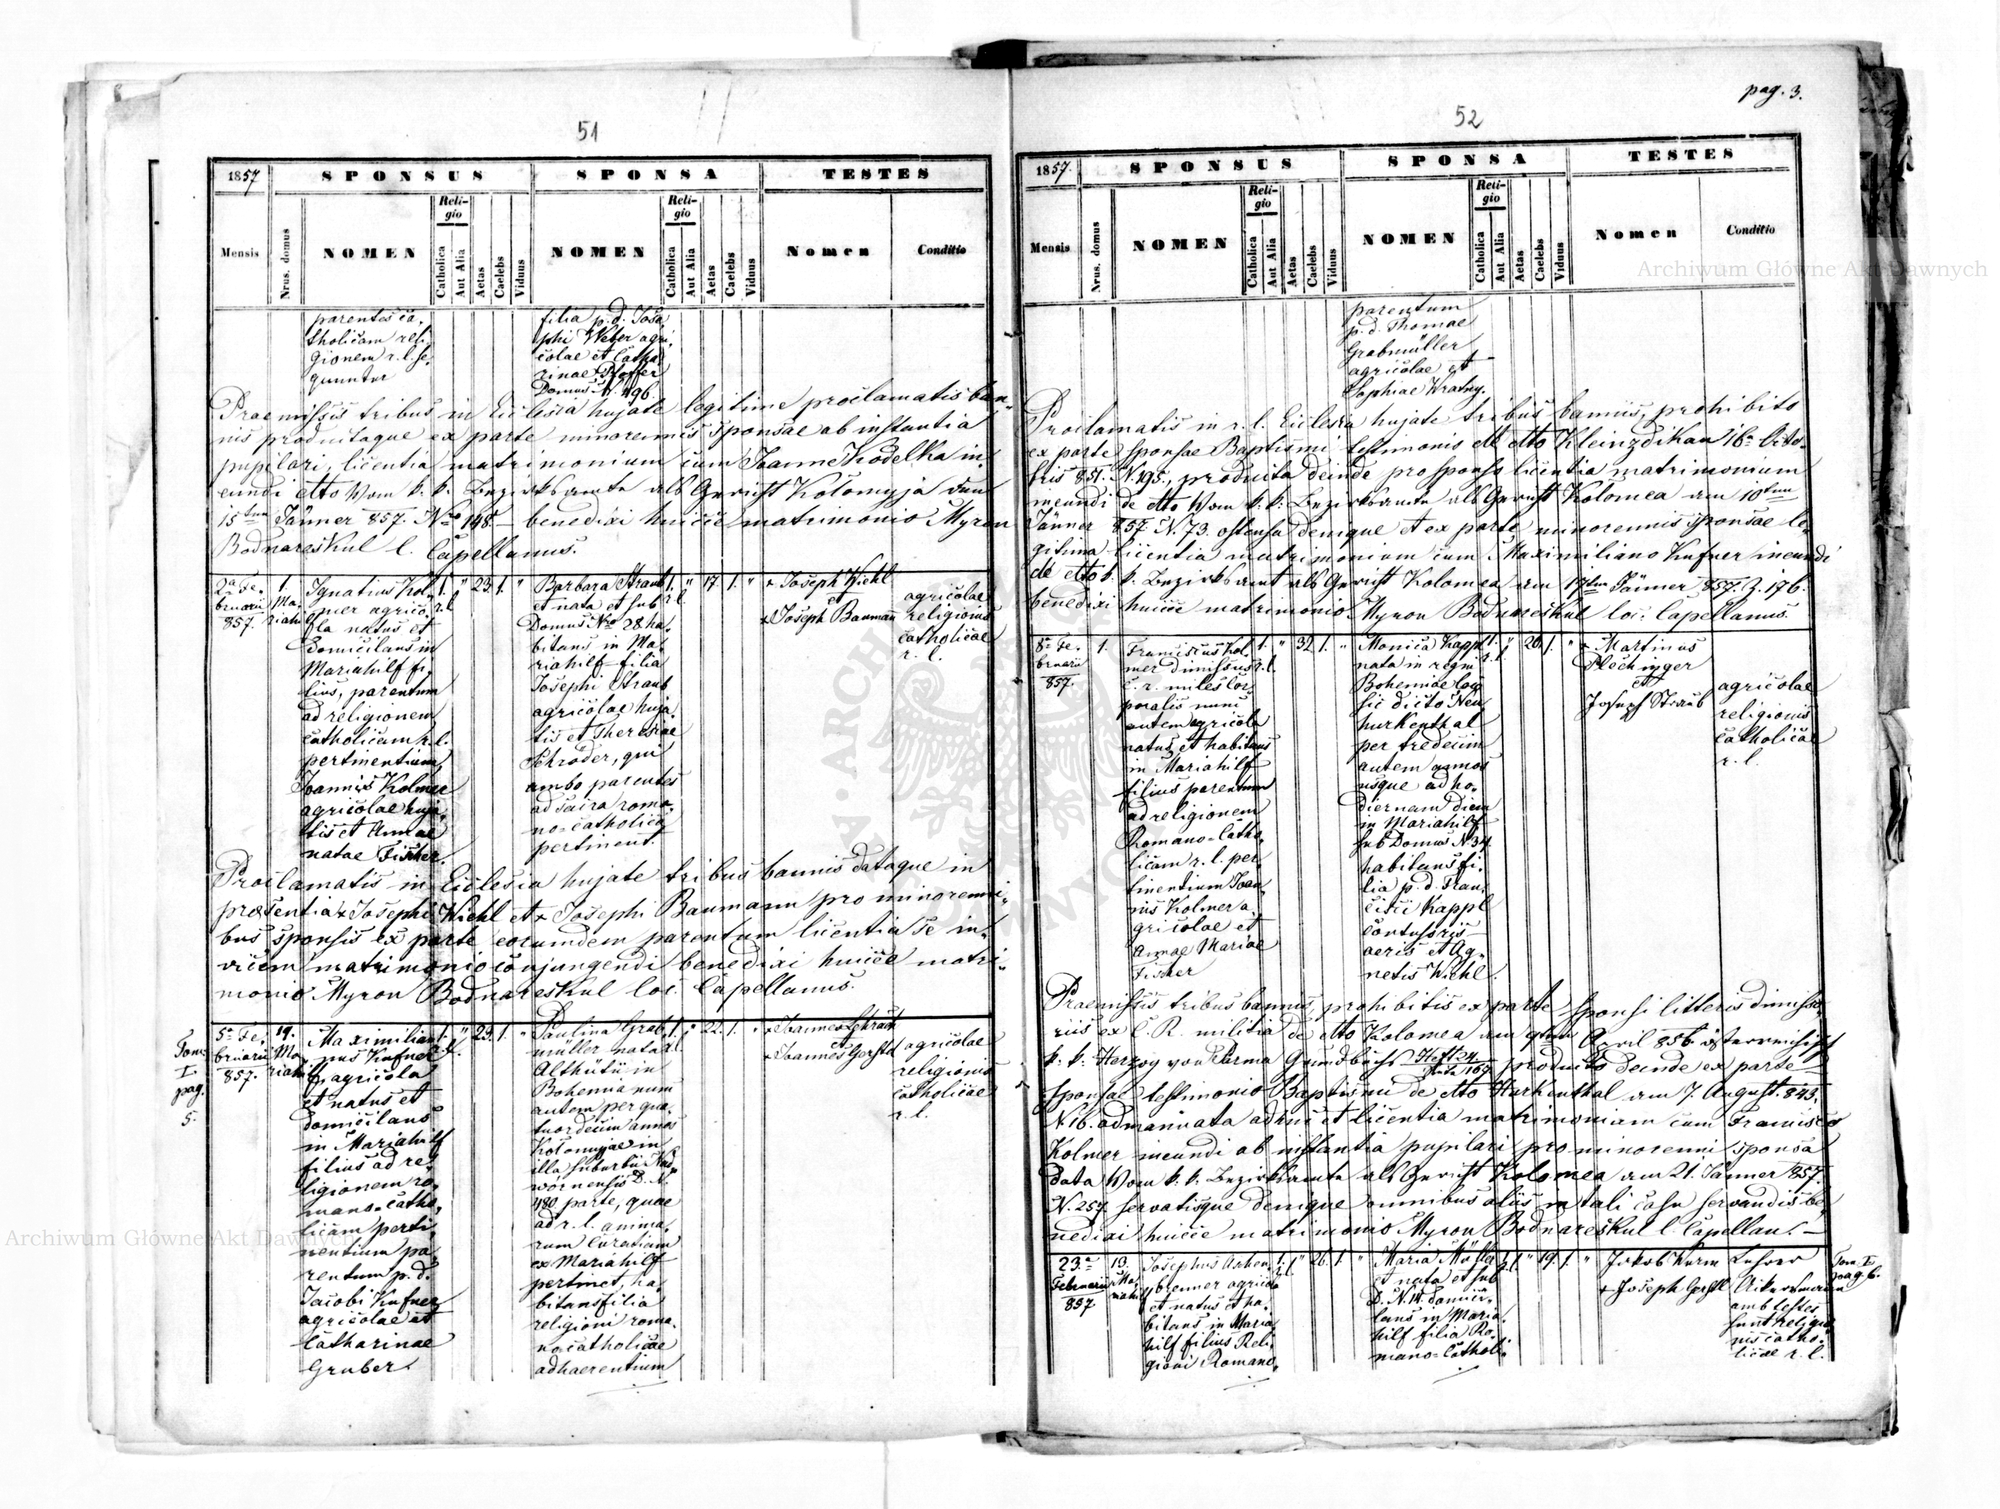 51
1857
SPONSUS
SPONSA
TESTES
Mensis
Nrus. domus
NOMEN
Religio
Catholica
Aut Alia
Aetas
Caelebs
Viduus
NOMEN
Religio
Catholica
Aut Alia
Aetas
Caelebs
Viduus
Nomen
Conditio
parentes ca-
tholicam reli-
gionem r. l. se-
quuntur
filia p. d. Jose-
phi Weber agri-
colae et Catha-
rinae
Domus N. 496.
Praemissis tribus in Ecclesia hujate legitime proclamatis ban-
nis productaque ex parte minorennis sponsae ab instantia
pupilari, licentia matrimonium cum Joanne Kodelka in-
eundi dtto Vom k. k. Bezirksamte als Gericht Kolomyja dem
15ten Jänner 857. Nro 148. benedixi huicce matrimonio Myron
Bodnareskul l. Capellanus.
2a Fe-
bruarii
857.
1.
Ma-
riahilf
Ignatius Kol-
mer agrico-
la natus et
domicilans in
Mariahilf fi-
lius, parentum
ad religionem
catholicam r. l.
pertinentium,
Joannis Kolmer
agricolae huja-
tis et Annae
natae Fischer.
1.
r. l.
"
23.
1.
"
Barbara Straub
et nata et sub
Domus Nro 28 ha-
bitans in Ma-
riahilf filia
Josephi Straub
agricolae huja-
tis et Theresiae
Schröder, qui
ambo parentes
ad sacra roma-
no-catholica
pertinent.
1.
r. l.
"
17.
1.
"
+ Joseph Wiehl
et
+ Joseph Bauman
agricolae
religionis
catholicae
r. l.
Proclamatis in Ecclesia hujate tribus bannis dataque in
prosentia + Josephi Wiehl et + Josephi Baumann pro minorenni-
bus sponsis ex parte eorumdem parentum licentia se in-
vicem matrimonio conjungendi benedixi huicce matri-
monio Myron Bodnareskul loc. Capellanus.
Tom
I.
pag.
5.
5a Fe-
bruarii
857.
19.
Ma-
riahilf
Maximilia-
nus Kufner
agricola
et natus et
domicilans
in Mariahilf
filius ad re-
ligionem ro-
mano-catho-
licam perti-
nentium pa-
rentum p. d.
Jacobi Kufner
agricolae et
Catharinae
Gruber.
1.
r. l.
"
23.
1.
"
Paulina Grab-
müller nata
in
Bohemia nunc
autem per qua-
tuordecim annos
Kolomyjae in
illa suburbii
D. N.
480 parte, quae
ad r. l. anima-
rum Curatiam
ex Mariahilf
pertinet, ha-
bitans filia
religioni roma-
no catholicae
adhaerentium
1.
r. l.
"
22.
1.
"
+ Joannes Schrach
et
+ Joannes Gerstel
agricolae
religionis
catholicae
r. l.
pag. 3.
52
1857.
SPONSUS
SPONSA
TESTES
Mensis
Nrus. domus
NOMEN
Religio
Catholica
Aut Alia
Aetas
Caelebs
Viduus
NOMEN
Religio
Catholica
Aut Alia
Aetas
Caelebs
Viduus
Nomen
Conditio
parentum
p. d. Thomae
Grabmüller
agricolae et
Sophiae Kratny.
Proclamatis in r. l. Ecclesia hujate tribus bannis, prohibito
ex parte sponsae Baptismi testimonio de dtto Kleinzdikau 16a Octo-
bris 851. N. 195., producta deinde pro sponso licentia matrimonium
ineundi de dtto Vom k. k. Bezirksamte als Gericht Kolomea am 10ten
Jänner 857. N. 73. ostensa denique et ex parte minorennis sponsae le-
gitima licentia matrimonium cum Maximiliano Kufner ineundi
de dtto k. k. Bezirksamt als Gericht Kolomea am 17ten Jänner 857. Z. 176.
benedixi huicce matrimonio Myron Bodnareskul loc: Capellanus.
8a Fe-
bruarii
857.
1.
Franciscus Kol-
mer dimissus
C. r. miles Cor-
poralis nunc
autem agricola
natus et habitans
in Mariahilf
filius parentum
ad religionem
Romano-Catho-
licam r. l. per-
tinentium Joan-
nis Kolmer a-
gricolae et
Annae Mariae
Fischer
1.
r. l.
"
32.
1.
"
Monica Kappl
nata in regni
Bohemiae loco
sic dicto Neu-
hurkenthal
per tredecim
autem annos
usque ad ho-
diernam diem
in Mariahilf
sub Domus N. 34
habitans fi-
lia p. d. Fran-
cisci Kappl
aeris et Ag-
netis Wiehl.
1.
r. l.
"
26.
1.
"
+ Martinus
Flechinger
et
Joseph Straub
agricolae
religionis
catholicae
r. l.
Praemissis tribus bannis, prohibitis ex parte sponsi litteris dimisso-
riis ex C. R. militia de dtto Kolomea am 9ten April 856 österreichisch
k. k. Herzog von Parma Grundbuchs Heft 24 Seite 169 producto deinde ex parte
sponsae testimonio Baptismi de dtto Hurkenthal am 7. August. 843.
N. 16. admanuata adhuc et licentia matrimonium cum Francisco
Kolmer ineundi ab instantia pupilari pro minorenni sponsa
data Vom k. k. Bezirksamte als Gericht Kolomea am 21. Jänner 857.
N. 257 servatisque denique omnibus aliis in tali casu servandis be-
nedixi huicce matrimonio Myron Bodnareskul l. Capellan.
23a
Februarii
857
13.
Ma-
riahilf
Josephus Aschen-
brenner agricola
et natus et ha-
bitans in Maria-
hilf filius Reli-
gioni Romano-
1.
r. l.
"
26.
1.
"
Maria Müller
et nata et sub
D. N. 14. domici-
lans in Maria-
hilf filia Ro-
mano-Catholi-
1.
r. l.
"
19.
1.
"
Jakob Wurm
+ Joseph Gerstl
Lehrer
Ackersmann
amb testes
sunt religio-
nis catho-
licae r. l.
Tom. I.
pag. 6.
Archiwum Główne Akt Dawnych
Archiwum Główne Akt Dawnych